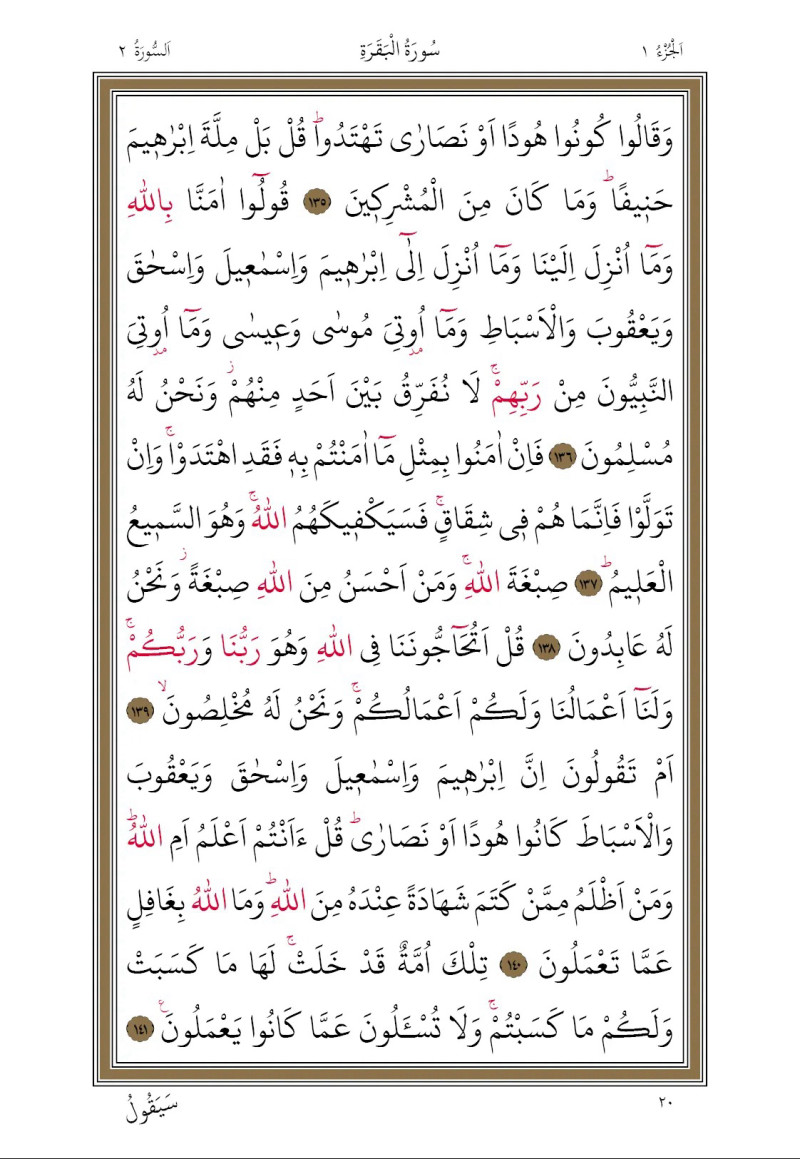 اَلْجُزْءُ ١ سُورَةُ الْبَقَرَةِ اَلسُّورَةُ ٢
وَقَالُوا كُونُوا هُودًا اَوْ نَصَارٰى تَهْتَدُواۜ قُلْ بَلْ مِلَّةَ اِبْرٰه۪يمَ
حَن۪يفًاۜ وَمَا كَانَ مِنَ الْمُشْرِك۪ينَ ﴿١٣٥﴾ قُولُٓوا اٰمَنَّا بِاللّٰهِ
وَمَٓا اُنْزِلَ اِلَيْنَا وَمَٓا اُنْزِلَ اِلٰٓى اِبْرٰه۪يمَ وَاِسْمٰع۪يلَ وَاِسْحٰقَ
وَيَعْقُوبَ وَالْاَسْبَاطِ وَمَٓا اُو۫تِيَ مُوسٰى وَع۪يسٰى وَمَٓا اُو۫تِيَ
النَّبِيُّونَ مِنْ رَبِّهِمْۚ لَا نُفَرِّقُ بَيْنَ اَحَدٍ مِنْهُمْۘ وَنَحْنُ لَهُ
مُسْلِمُونَ ﴿١٣٦﴾ فَاِنْ اٰمَنُوا بِمِثْلِ مَٓا اٰمَنْتُمْ بِه۪ فَقَدِ اهْتَدَوْاۚ وَاِنْ
تَوَلَّوْا فَاِنَّمَا هُمْ ف۪ي شِقَاقٍۚ فَسَيَكْف۪يكَهُمُ اللّٰهُۚ وَهُوَ السَّم۪يعُ
الْعَل۪يمُۜ ﴿١٣٧﴾ صِبْغَةَ اللّٰهِۚ وَمَنْ اَحْسَنُ مِنَ اللّٰهِ صِبْغَةًۘ وَنَحْنُ
لَهُ عَابِدُونَ ﴿١٣٨﴾ قُلْ اَتُحَٓاجُّونَنَا فِي اللّٰهِ وَهُوَ رَبُّنَا وَرَبُّكُمْۚ
وَلَنَٓا اَعْمَالُنَا وَلَكُمْ اَعْمَالُكُمْۚ وَنَحْنُ لَهُ مُخْلِصُونَۙ ﴿١٣٩﴾
اَمْ تَقُولُونَ اِنَّ اِبْرٰه۪يمَ وَاِسْمٰع۪يلَ وَاِسْحٰقَ وَيَعْقُوبَ
وَالْاَسْبَاطَ كَانُوا هُودًا اَوْ نَصَارٰىۜ قُلْ ءَاَنْتُمْ اَعْلَمُ اَمِ اللّٰهُۜ
وَمَنْ اَظْلَمُ مِمَّنْ كَتَمَ شَهَادَةً عِنْدَهُ مِنَ اللّٰهِۜ وَمَا اللّٰهُ بِغَافِلٍ
عَمَّا تَعْمَلُونَ ﴿١٤٠﴾ تِلْكَ اُمَّةٌ قَدْ خَلَتْۚ لَهَا مَا كَسَبَتْ
وَلَكُمْ مَا كَسَبْتُمْۚ وَلَا تُسْـَٔلُونَ عَمَّا كَانُوا يَعْمَلُونَ ع ﴿١٤١﴾
٢٠ سَيَقُولُ